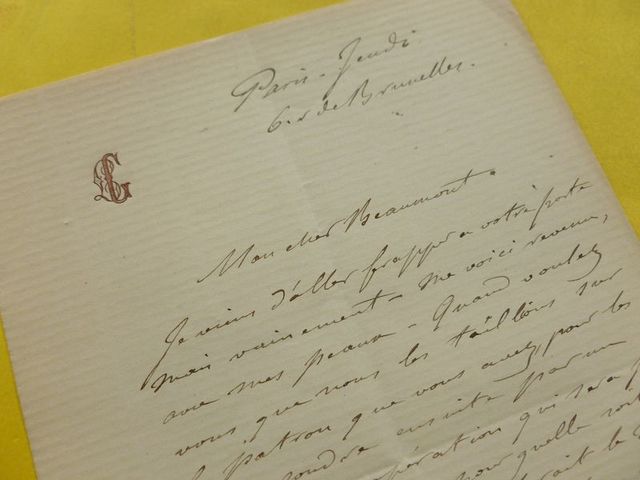 Paris - Jeudi
6. r de Bruxelles.
Mon cher Beaumont.
Je viens d'aller frapper a votre porte
mais vainement - Me voici revenu,
avec mes peaux - Quand voulez
vous que nous les taillons sur
le patron que vous avez, pour les
coudre ensuite par un
opération qui sera
pour quelle soit